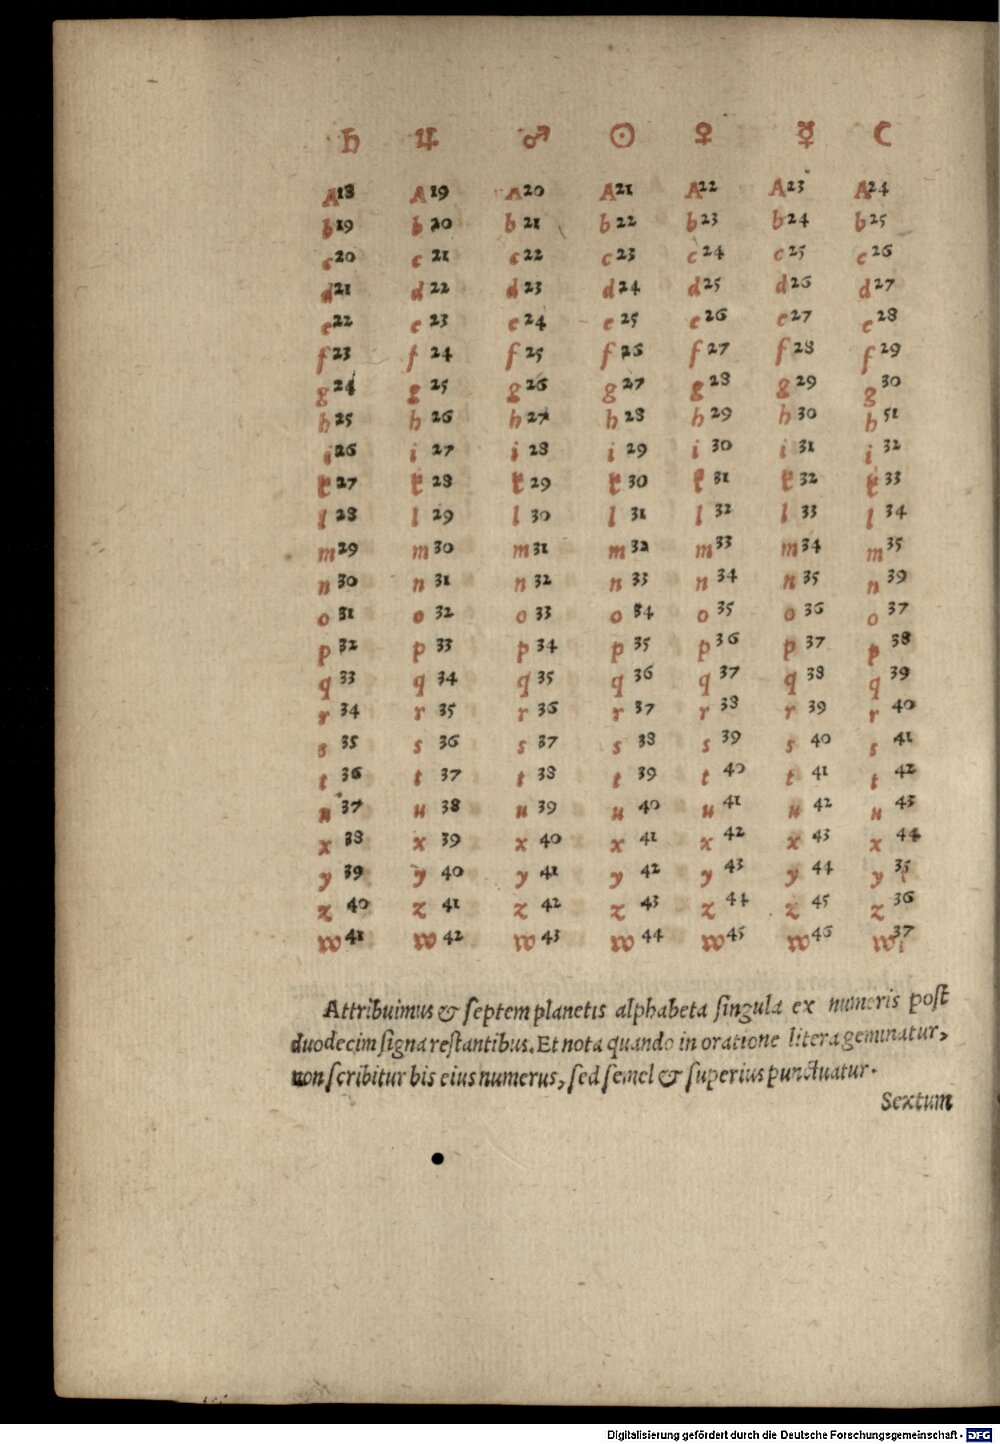 ♄ ♃ ♂ ☉ ♀ ☿ ☾
A18 A19 A20 A21 A22 A23 A24
b19 b20 b21 b22 b23 b24 b25
c20 c21 c22 c23 c24 c25 c26
d21 d22 d23 d24 d25 d26 d27
e22 e23 e24 e25 e26 e27 e28
f23 f24 f25 f26 f27 f28 f29
g24 g25 g26 g27 g28 g29 g30
h25 h26 h27 h28 h29 h30 h51
i26 i27 i28 i29 i30 i31 i32
k27 k28 k29 k30 k31 k32 k33
l28 l29 l30 l31 l32 l33 l34
m29 m30 m31 m32 m33 m34 m35
n30 n31 n32 n33 n34 n35 n39
o31 o32 o33 o34 o35 o36 o37
p32 p33 p34 p35 p36 p37 p38
q33 q34 q35 q36 q37 q38 q39
r34 r35 r36 r37 r38 r39 r40
s35 s36 s37 s38 s39 s40 s41
t36 t37 t38 t39 t40 t41 t42
u37 u38 u39 u40 u41 u42 u43
x38 x39 x40 x41 x42 x43 x44
y39 y40 y41 y42 y43 y44 y35
z40 z41 z42 z43 z44 z45 z36
w41 w42 w43 w44 w45 w46 w37
Attribuimus & ſeptem planetis alphabeta ſingula ex numeris poſt
duodecim ſigna reſtantibus. Et nota quando in oratione litera geminatur,
non ſcribitur bis eius numerus, ſed ſemel & ſuperius punctuatur.
Sextum
Digitalisierung gefördert durch die Deutsche Forschungsgemeinschaft - DFG